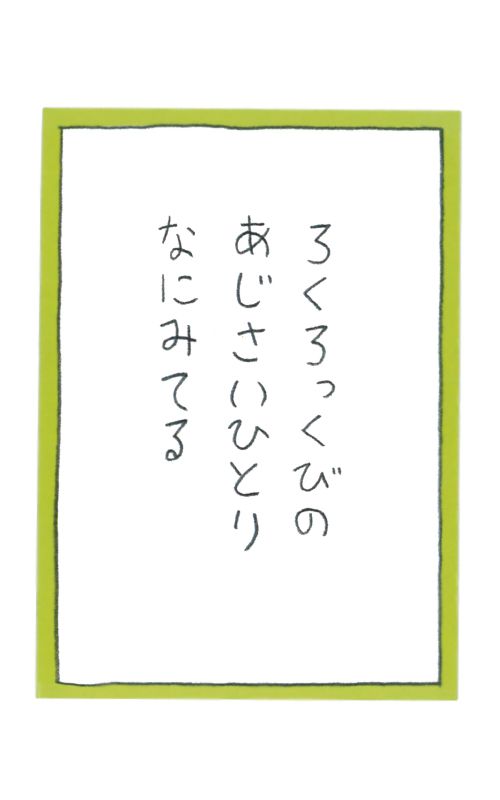 ろくろっくびの
あじさいひとり
なにみてる